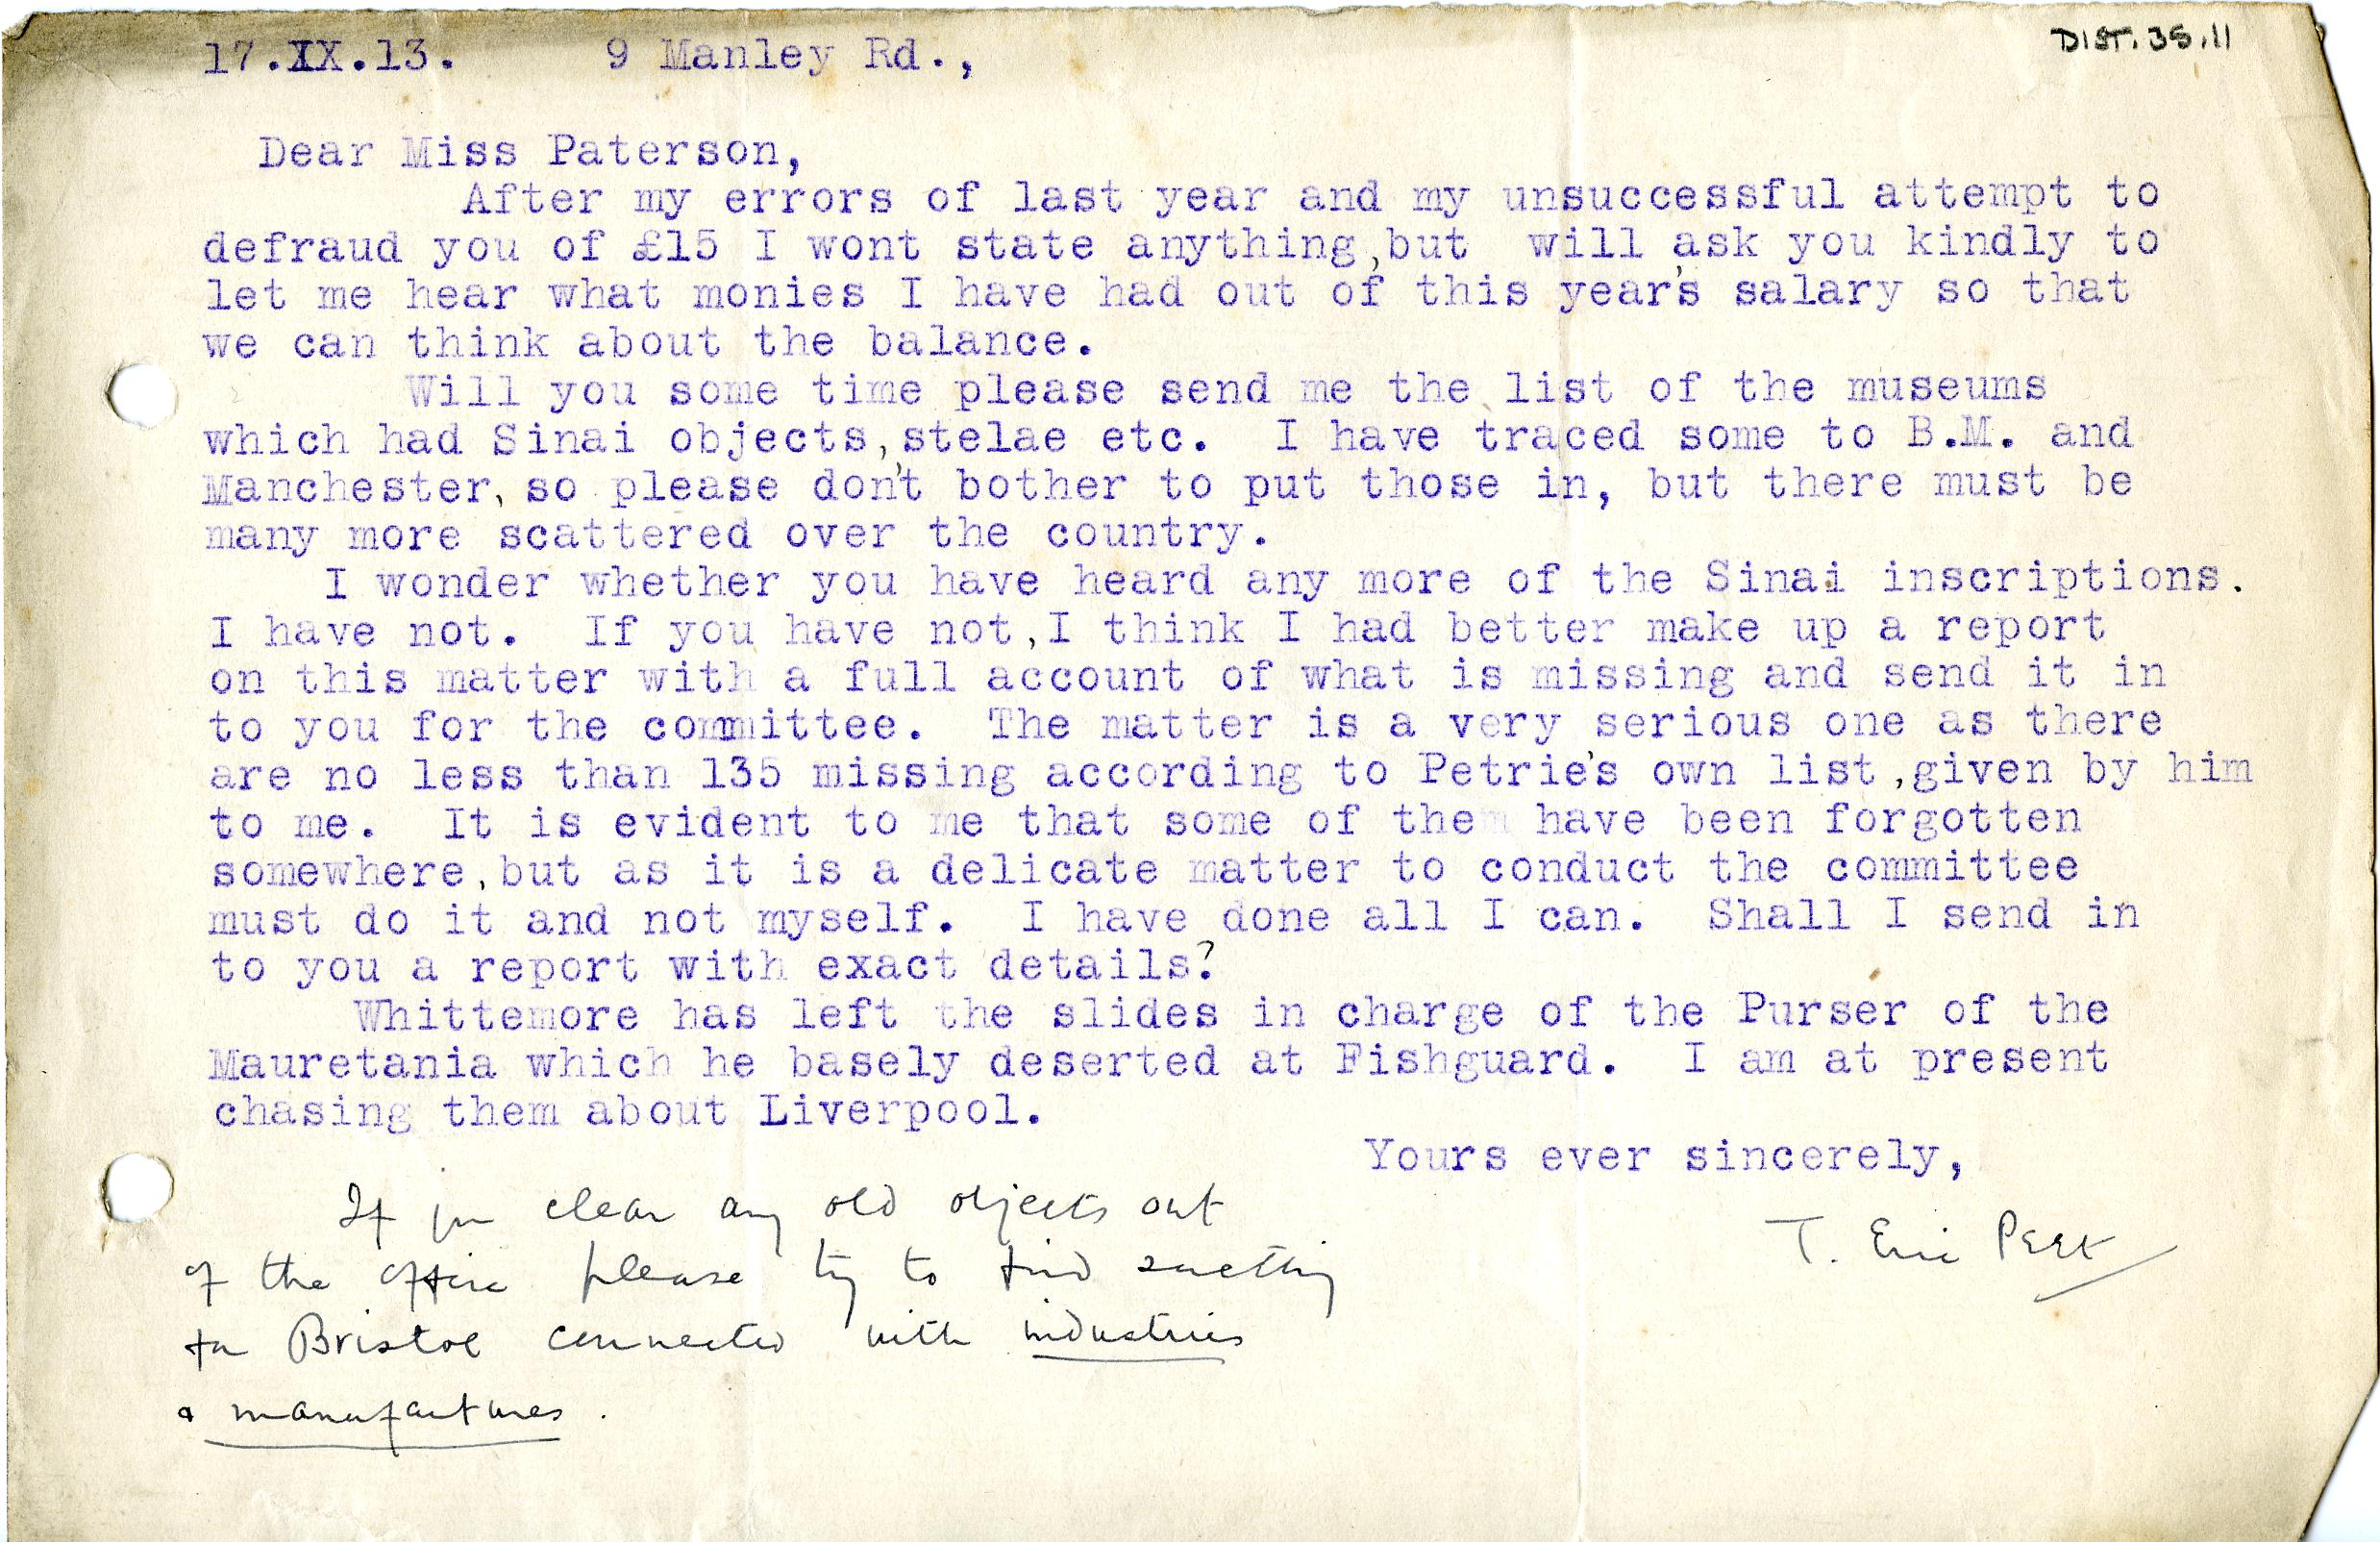 DIST.35.11
17.IX.13. 9 Manley Rd.,
Dear Miss Paterson,
After my errors of last year and my unsuccessful attempt to
defraud you of £15 I wont state anything,but will ask you kindly to
let me hear what monies I have had out of this year's salary so that
we can think about the balance.
Will you some time please send me the list of the museums
which had Sinai objects,stelae etc. I have traced some to B.M. and
Manchester, so please don't bother to put those in, but there must be
many more scattered over the country.
I wonder whether you have heard any more of the Sinai inscriptions.
I have not. If you have not,I think I had better make up a report
on this matter with a full account of what is missing and send it in
to you for the committee. The matter is a very serious one as there
are no less than 135 missing according to Petrie's own list,given by him
to me. It is evident to me that some of them have been forgotten
somewhere,but as it is a delicate matter to conduct the committee
must do it and not myself. I have done all I can. Shall I send in
to you a report with exact details?
Whittemore has left the slides in charge of the Purser of the
Mauretania which he basely deserted at Fishguard. I am at present
chasing them about Liverpool.
Yours ever sincerely,
T. Eric Peet
If you clear any old objects out
of the office please try to find something
for Bristol connected with industries
& manufactures.